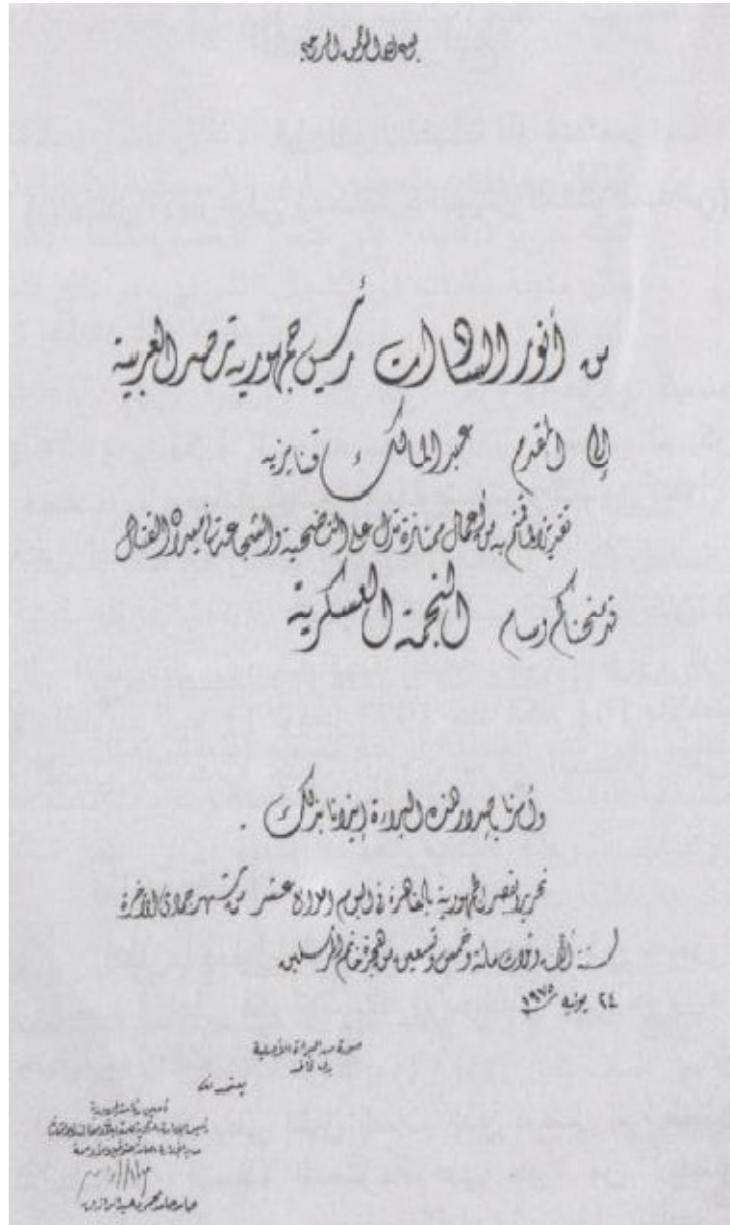 بسم الله الرحمن الرحيم
من أنور السادات رئيس جمهورية مصر العربية
إلى المقدم عبد المالك قنايزيه
تقديرا لما قمتم به من أعمال ممتازة تدل على التضحية والشجاعة في ميدان القتال
قد منحناكم وسام النجمة العسكرية
وأمرنا بإصدار هذه البراءة إيذانا بذلك .
تحريرا بقصر الجمهورية بالقاهرة في اليوم عشر من شهر جمادى الآخرة
لسنة ألف وثلاث مائة وخمس وتسعين من هجرة خاتم المرسلين
٢٤ يونيه ١٩٧٥
صورة من البراءة الأصلية
يعتمد
أمين رئاسة الجمهورية